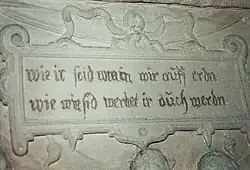 wie ir seid warn wir auff erdn
wie wir sid werdet ir auch werdn